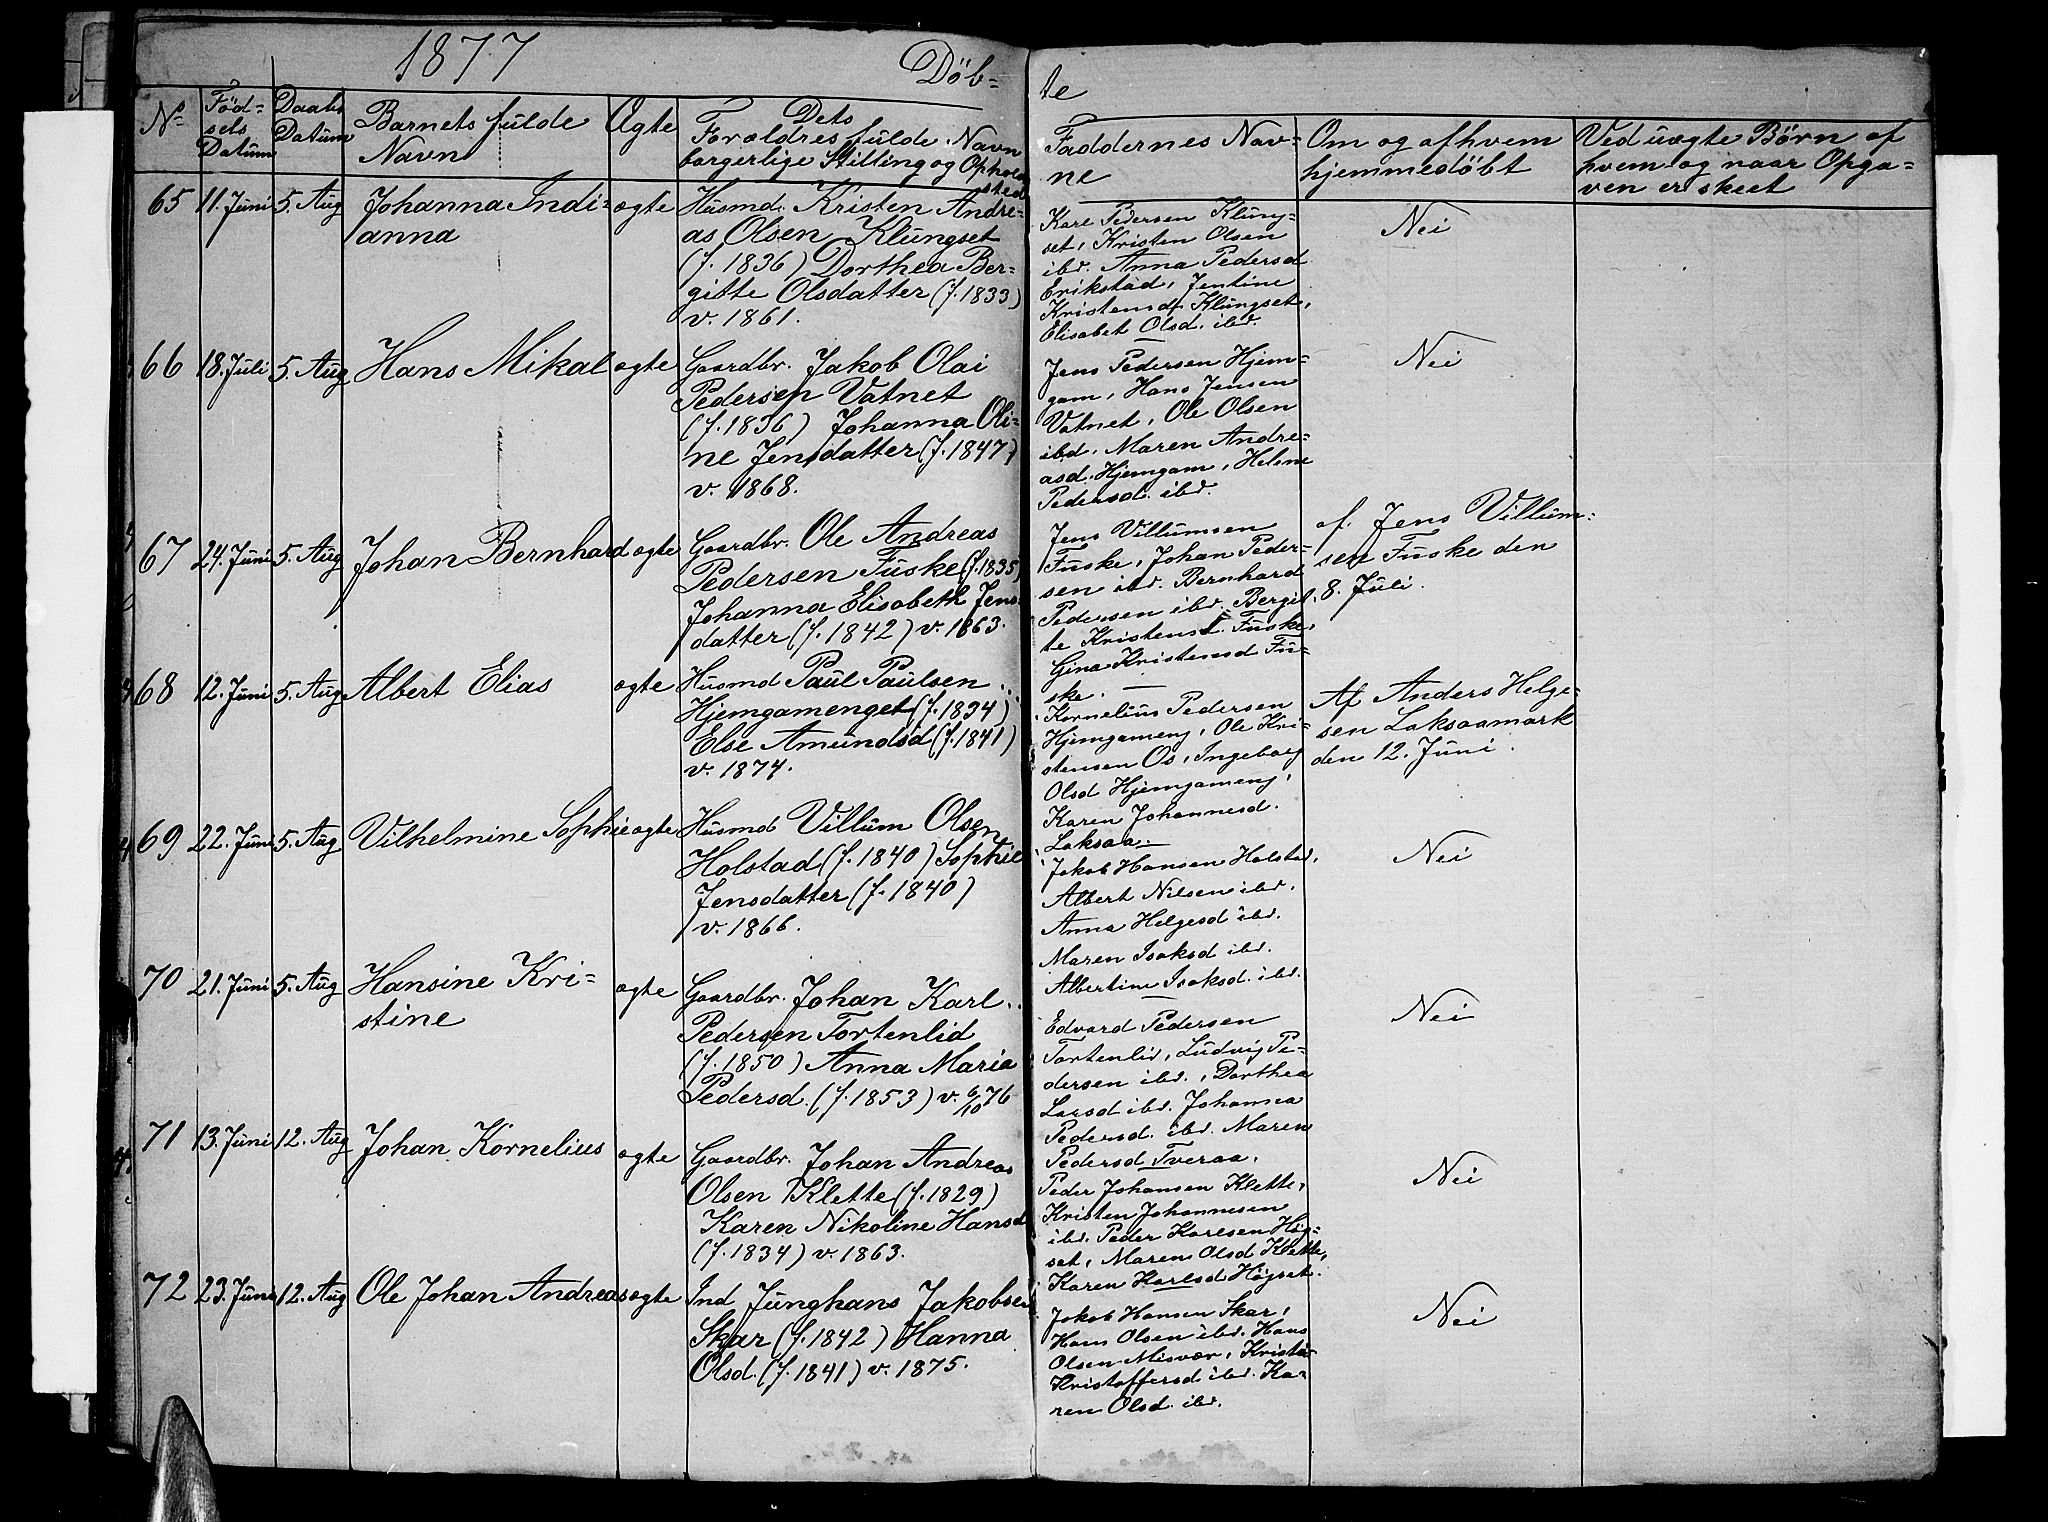 1877
Döb-
te
No
Föd-
sels
Datum
Daabs
Datum
Barnets fulde
Navn
Ægte
Dets
Forældres fulde Navn
borgerlige Stilling og Ophold
sted
Faddernes Nav-
ne
Om og af hvem
hjemmedöbt
Ved uægte Børn af
hvem og naar Opga-
ven er skeet
65 11. Juni 5. Aug Johanna Indi-
anna
ægte
Husmd. Kristen Andre-
as Olsen Klungset
(f. 1836) Dorthea Ber-
gitte Olsdatter (f. 1833)
v. 1861.
Karl Pedersen Klung-
set, Kristen Olsen
ibd. Anna Pedersd
Erikstad, Jentine
Kristensd Klungset,
Elisabet Olsd. ibd.
Nei
66 18. Juli 5. Aug Hans Mikal
ægte
Gaardbr. Jakob Olai
Pedersen Vatnet
(f. 1836) Johanna Oli-
ne Jensdatter (f. 1847)
v. 1868.
Jens Pedersen Hjem-
gam, Hans Jensen
Vatnet, Ole Olsen
ibd, Maren Andre-
asd. Hjemgam, Helene
Pedersd. ibd.
Nei
67 24. Juni 5. Aug Johan Bernhard
ægte
Gaardbr. Ole Andreas
Pedersen Fuske (f. 1835)
Johanna Elisabeth Jens-
datter (f. 1842) v. 1863.
Jens Villumsen
Fuske, Johan Peder-
sen ibd. Bernhard
Pedersen ibd. Bergit-
te Kristensd. Fuske,
Gina Kristensd Fu-
ske.
af. Jens Villum-
sen Fuske den
8. Juli.
68 12. Juni 5. Aug Albert Elias
ægte
Husmd Paul Paulsen
Hjemgamenget (f. 1834)
Else Amundsd (f. 1841)
v. 1874.
Kornelius Pedersen
Hjemgameng, Ole Kri-
stensen Os, Ingeborg
Olsd Hjemgameng,
Karen Johannesd.
Laksaa.
Af Anders Helge-
sen Laksaamark
den 12. Juni.
69 22. Juni 5. Aug Vilhelmine Sophie
ægte
Husmd Villum Olsen
Holstad (f. 1840) Sophie
Jensdatter (f. 1840)
v. 1866.
Jakob Hansen Holstad,
Albert Nilsen ibd.
Anna Helgesd ibd.
Maren Isaksd ibd.
Albertine Isaksd. ibd.
Nei
70 21. Juni 5. Aug Hansine Kri-
stine
ægte
Gaardbr. Johan Karl
Pedersen Tortenlid
(f. 1850) Anna Maria
Pedersd. (f. 1853) v. 6/10 76
Edvard Pedersen
Tortenlid, Ludvig Pe-
dersen ibd., Dorthea
Larsd ibd. Johanna
Pedersd. ibd. Maren
Pedersd Tveraa.
Nei
71 13. Juni 12. Aug Johan Kornelius
ægte
Gaardbr. Johan Andreas
Olsen Klette (f. 1829)
Karen Nikoline Hansd
(f. 1834) v. 1863.
Peder Johansen Klette,
Kristen Johannesen
ibd. Peder Karlsen Høg-
set, Maren Olsd Klette,
Karen Karlsd Højset.
Nei
72 23. Juni 12. Aug Ole Johan Andreas
ægte
Ind Junghans Jakobsen
Skar (f. 1842) Hanna
Olsd. (f. 1841) v. 1875.
Jakob Hansen Skar,
Hans Olsen ibd. Hans
Olsen Misvær, Kristi-
Kristoffersd ibd. Ka-
ren Olsd ibd.
Nei